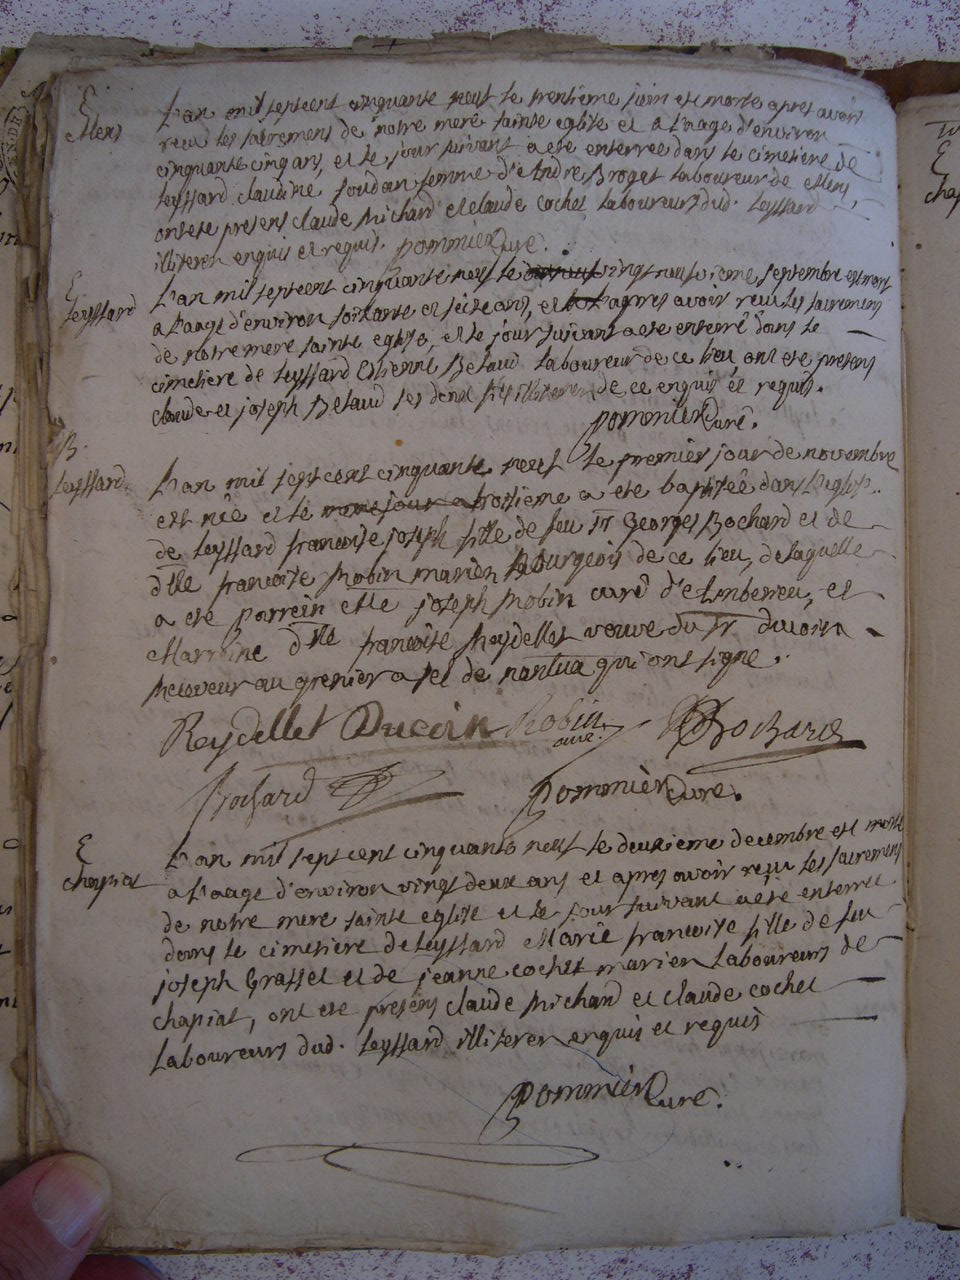 E
Mens
L'an mil septcent cinquante neuf le trentieme juin est morte apres avoir
reçu les sacremens de notre mere sainte eglise et a l'aage d'environ
cinquante cinq ans, et le jour suivant a ete enterree dans le cimetiere de
Leyssard claudine Soudan femme d'Andre Broget Laboureur de Mens,
ont ete presens claude Michard et claude cochet Laboureurs dud. Leyssard
illiterer enquis et requis. pommier curé.
E
Leyssard
L'an mil septcent cinquante neuf le vingt neuvieme septembre est mort
a l'aage d'environ soixante et seize ans, et apres avoir reçu les sacremens
de notre mere sainte eglise, et le jour suivant a ete enterré dans le
cimetiere de Leyssard Estienne Betaud laboureur de ce lieu, ont ete presens
claude et joseph Betaud ses deux fils illiterer de ce enquis et requis.
pommier curé.
B
Leyssard
L'an mil sept cent cinquante neuf le premier jour de novembre
est née et le troisieme a ete baptisée dans l'eglise
de Leyssard francoise joseph fille de feu Sr Georges Bochard et de
dlle francoise Robin marier Bourgeois de ce lieu, de laquelle
a ete parrein Mre joseph Robin curé d'Emberieu, et
Marreine dlle francoise Reydellet veuve du Sr ducoin
Receveur au grenier a sel de nantua qui ont signe.
Reydellet Ducoin Robin curé. Bochard
Bochard pommier curé.
E
chapiat
L'an mil sept cent cinquante neuf le deuxieme decembre est morte
a l'aage d'environ vingt deux ans et apres avoir reçu les sacremens
de notre mere sainte eglise et le jour suivant a ete enterrée
dans le cimetiere de Leyssard Marie francoise fille de feu
joseph Grasset et de jeanne cochet marier Laboureurs de
chapiat, ont ete presens claude Michard et claude cochet
Laboureurs dud. Leyssard illiterer enquis et requis
pommier curé.